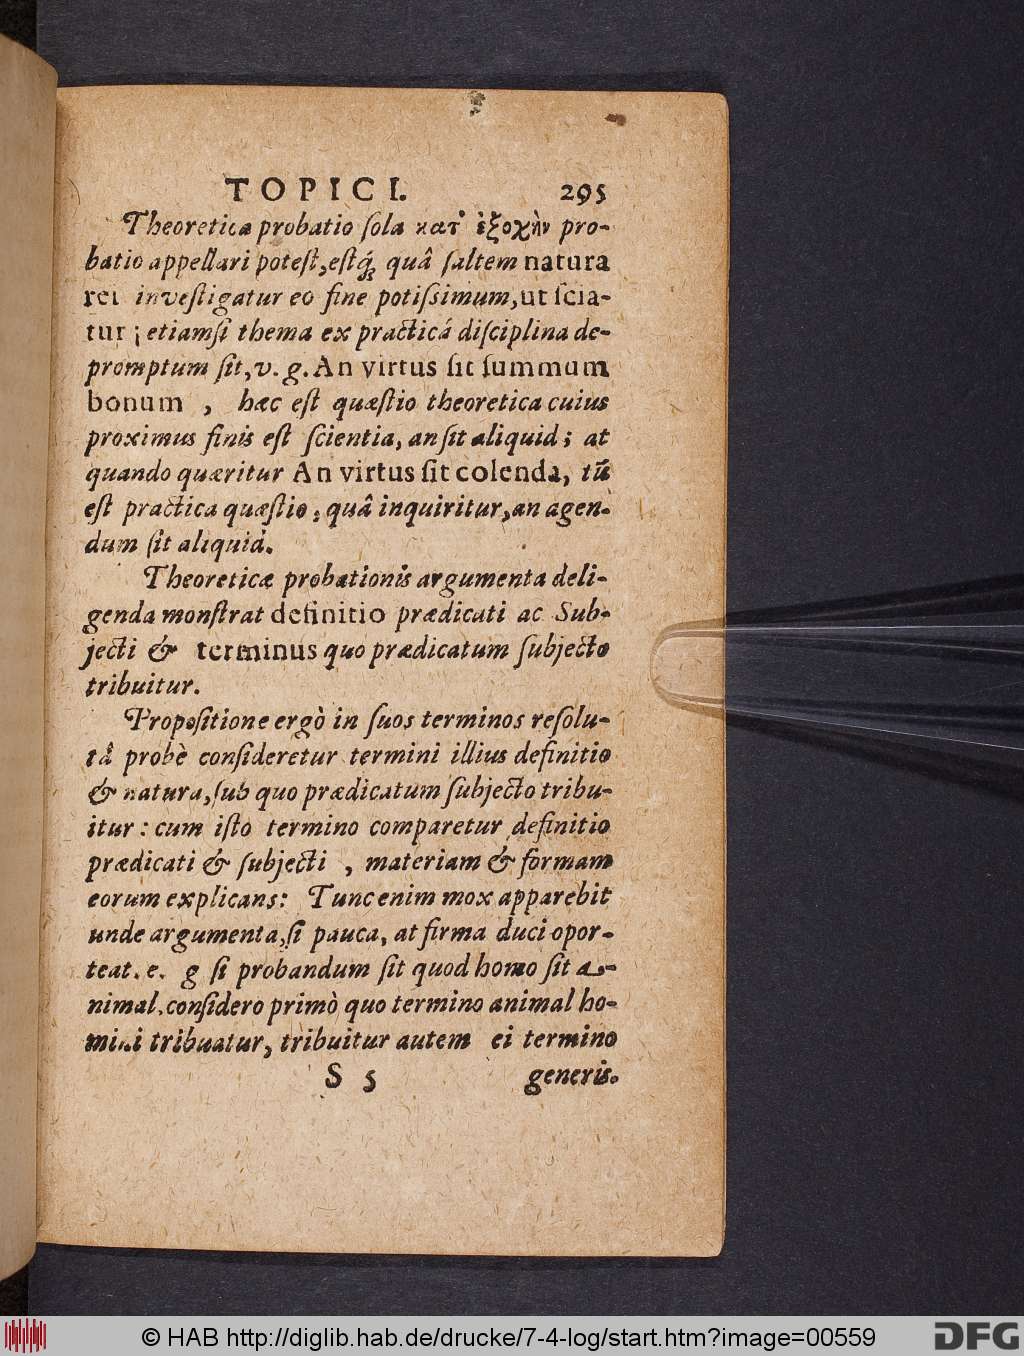 TOPICI. 295
Theoretica probatio ſola κατ' ἐξοχὴν pro-
batio appellari poteſt, eſtq́; quâ ſaltem natura
rei inveſtigatur eo fine potiſsimum, ut ſcia-
tur; etiamſi thema ex practicá diſciplina de-
promptum ſit, v. g. An virtus ſit ſummum
bonum, hæc eſt quæſtio theoretica cuius
proximus finis eſt ſcientia, an ſit aliquid; at
quando quæritur An virtus ſit colenda, tū
eſt practica quæſtio, quâ inquiritur, an agen-
dum ſit aliquid.
Theoreticæ probationis argumenta deli-
genda monſtrat definitio prædicati ac Sub-
jecti & terminus quo prædicatum ſubjecto
tribuitur.
Propoſitione ergò in ſuos terminos reſolu-
tâ probè conſideretur termini illius definitio
& natura, ſub quo prædicatum ſubjecto tribu-
itur: cum iſto termino comparetur definitio
prædicati & ſubjecti, materiam & formam
eorum explicans: Tunc enim mox apparebit
unde argumenta, ſi pauca, at firma duci opor-
teat. e. g ſi probandum ſit quod homo ſit a-
nimal. conſidero primò quo termino animal ho-
mini tribuatur, tribuitur autem ei termino
S 5 generis.
© HAB http://diglib.hab.de/drucke/7-4-log/start.htm?image=00559
DFG